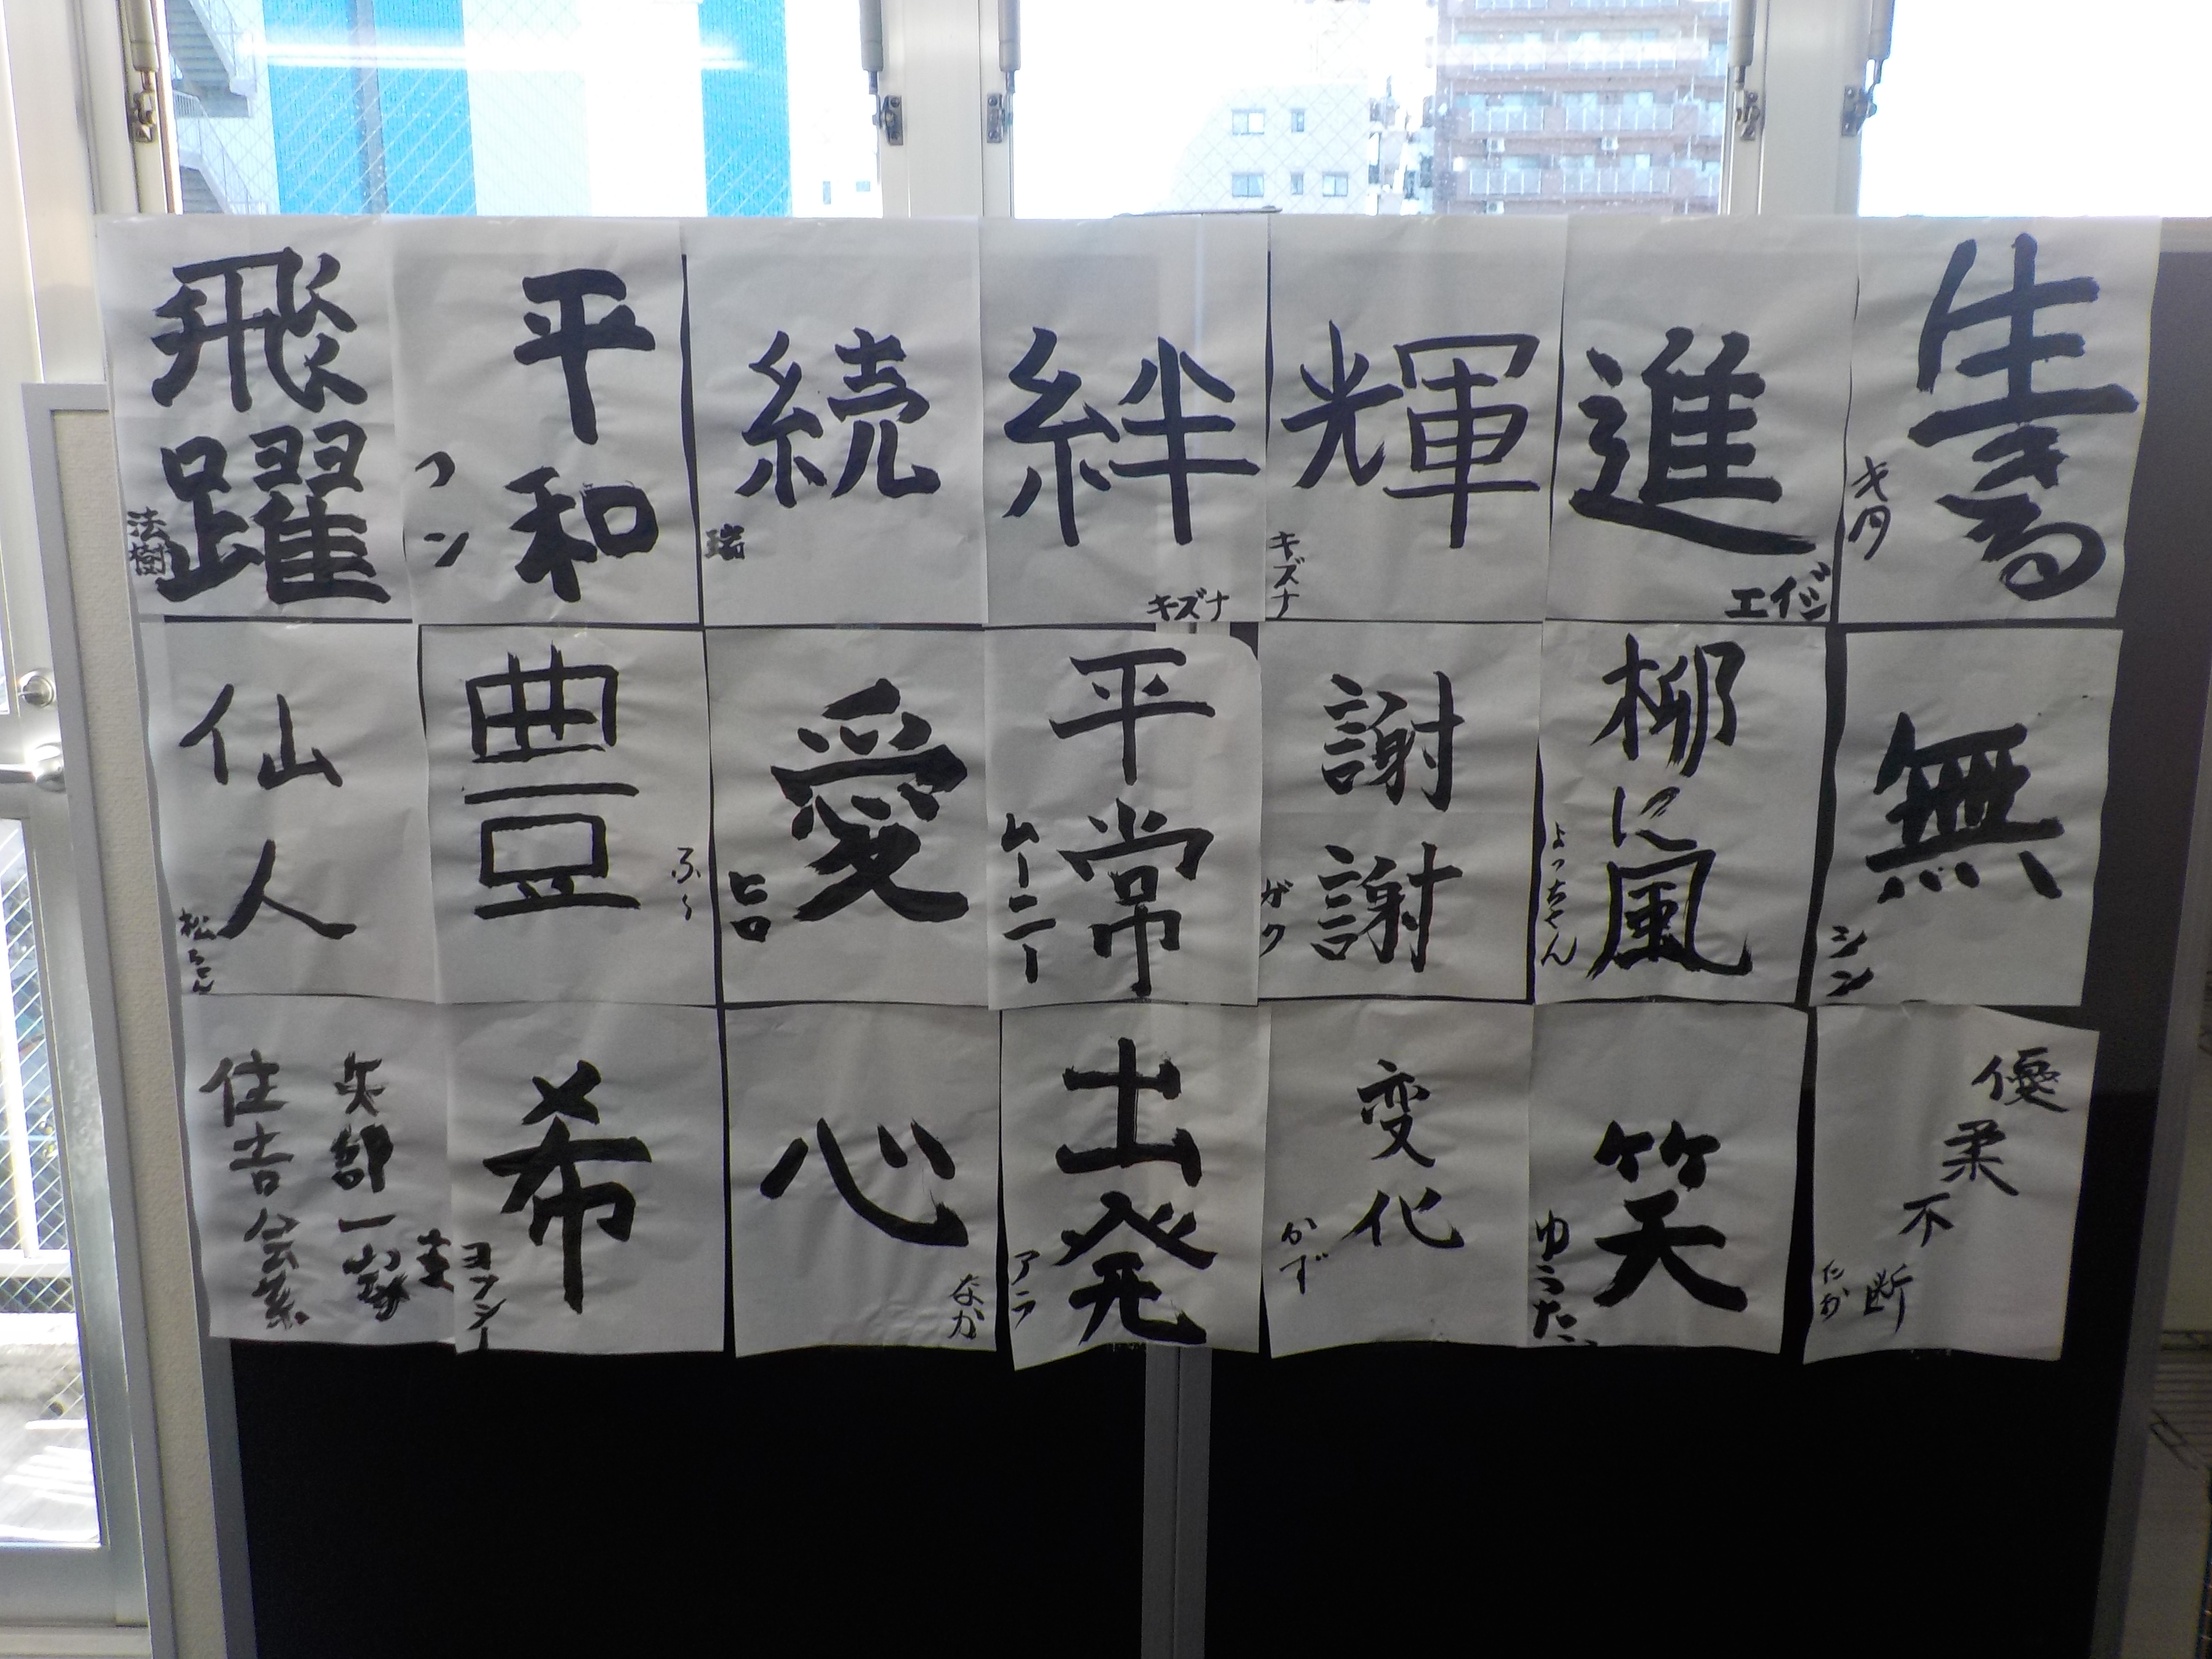 飛躍
法樹
平和
フン
続
瑞
絆
キズナ
輝
キズナ
進
エイジ
生きる
キタ
仙人
松ちゃん
豊
ふ〜
愛
ヒロ
平常
ムーニー
謝謝
ガク
柳に風
よっちゃん
無
シン
矢部
住吉
希
ヨッシー
心
なか
出発
アラ
変化
かず
笑
ゆうた
優柔不断
たか